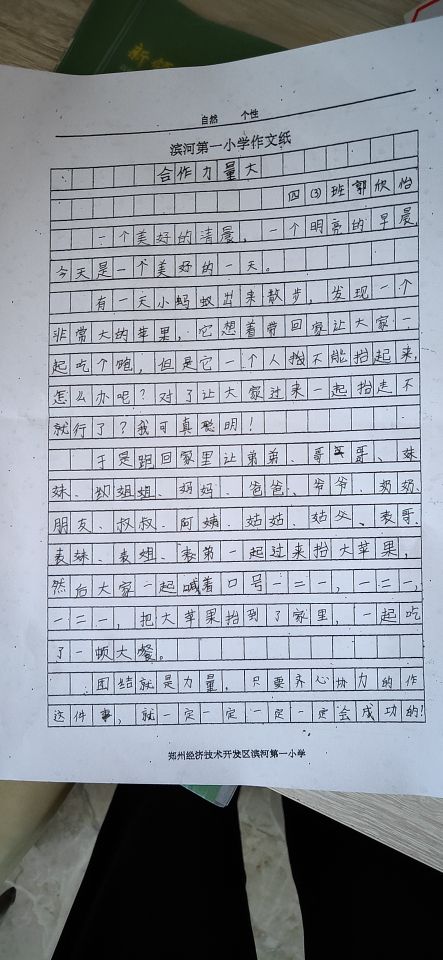 新领
自然 个性
滨河第一小学作文纸
合作力量大
四(3)班郭欣怡
一个美好的清晨，一个明亮的早晨，
今天是一个美好的一天。
有一天小蚂蚁出来散步，发现一个
非常大的苹果，它想着带回家让大家一
起吃个饱，但是它一个人搬不能抬起来，
怎么办呢？对了让大家过来一起抬走不
就行了？我可真聪明！
于是跑回家里让弟弟、哥哥、妹
妹、姐姐、妈妈、爸爸、爷爷、奶奶、
朋友、叔叔、阿姨、姑姑、姑父、表哥、
表妹、表姐、表弟一起过来抬大苹果，
然后大家一起喊着口号一二一，一二一，
一二一，把大苹果抬到了家里，一起吃
了一顿大餐。
团结就是力量，只要齐心协力的作
这件事，就一定一定一定一定会成功的！
郑州经济技术开发区滨河第一小学